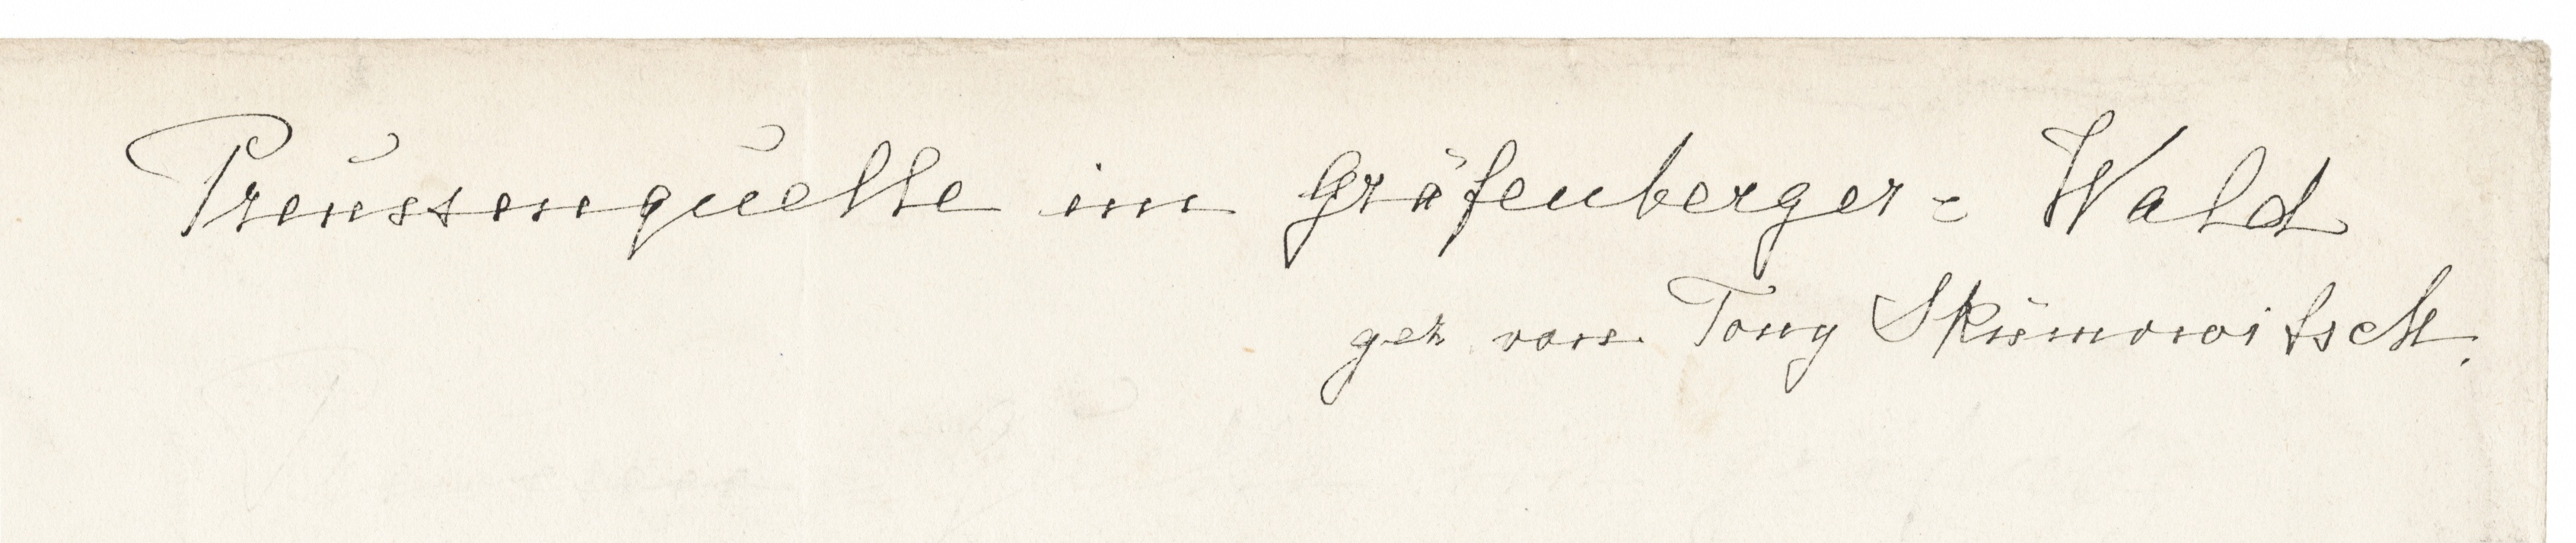 Preussenquelle im Gräfenberger = Wald
gez von Tony Skümowitsch.